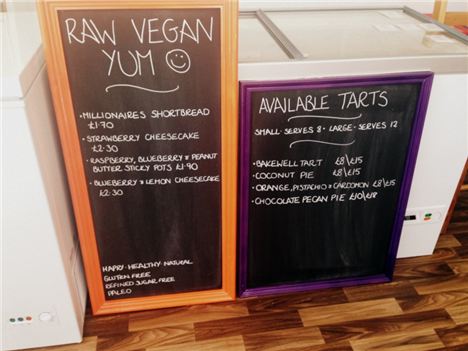 RAW VEGAN
YUM ☺
• MILLIONAIRES SHORTBREAD
£1.70
• STRAWBERRY CHEESECAKE
£2.30
• RASPBERRY, BLUEBERRY & PEANUT
BUTTER STICKY POTS £1.90
• BLUEBERRY & LEMON CHEESECAKE
£2.30
HAPPY·HEALTHY·NATURAL
GLUTEN FREE
REFINED SUGAR FREE
PALEO
AVAILABLE TARTS
SMALL-SERVES 8 - LARGE-SERVES 12
• BAKEWELL TART £8\£15
• COCONUT PIE £8\£15
• ORANGE, PISTACHIO & CARDOMON £8\£15
• CHOCOLATE PECAN PIE £10\£18